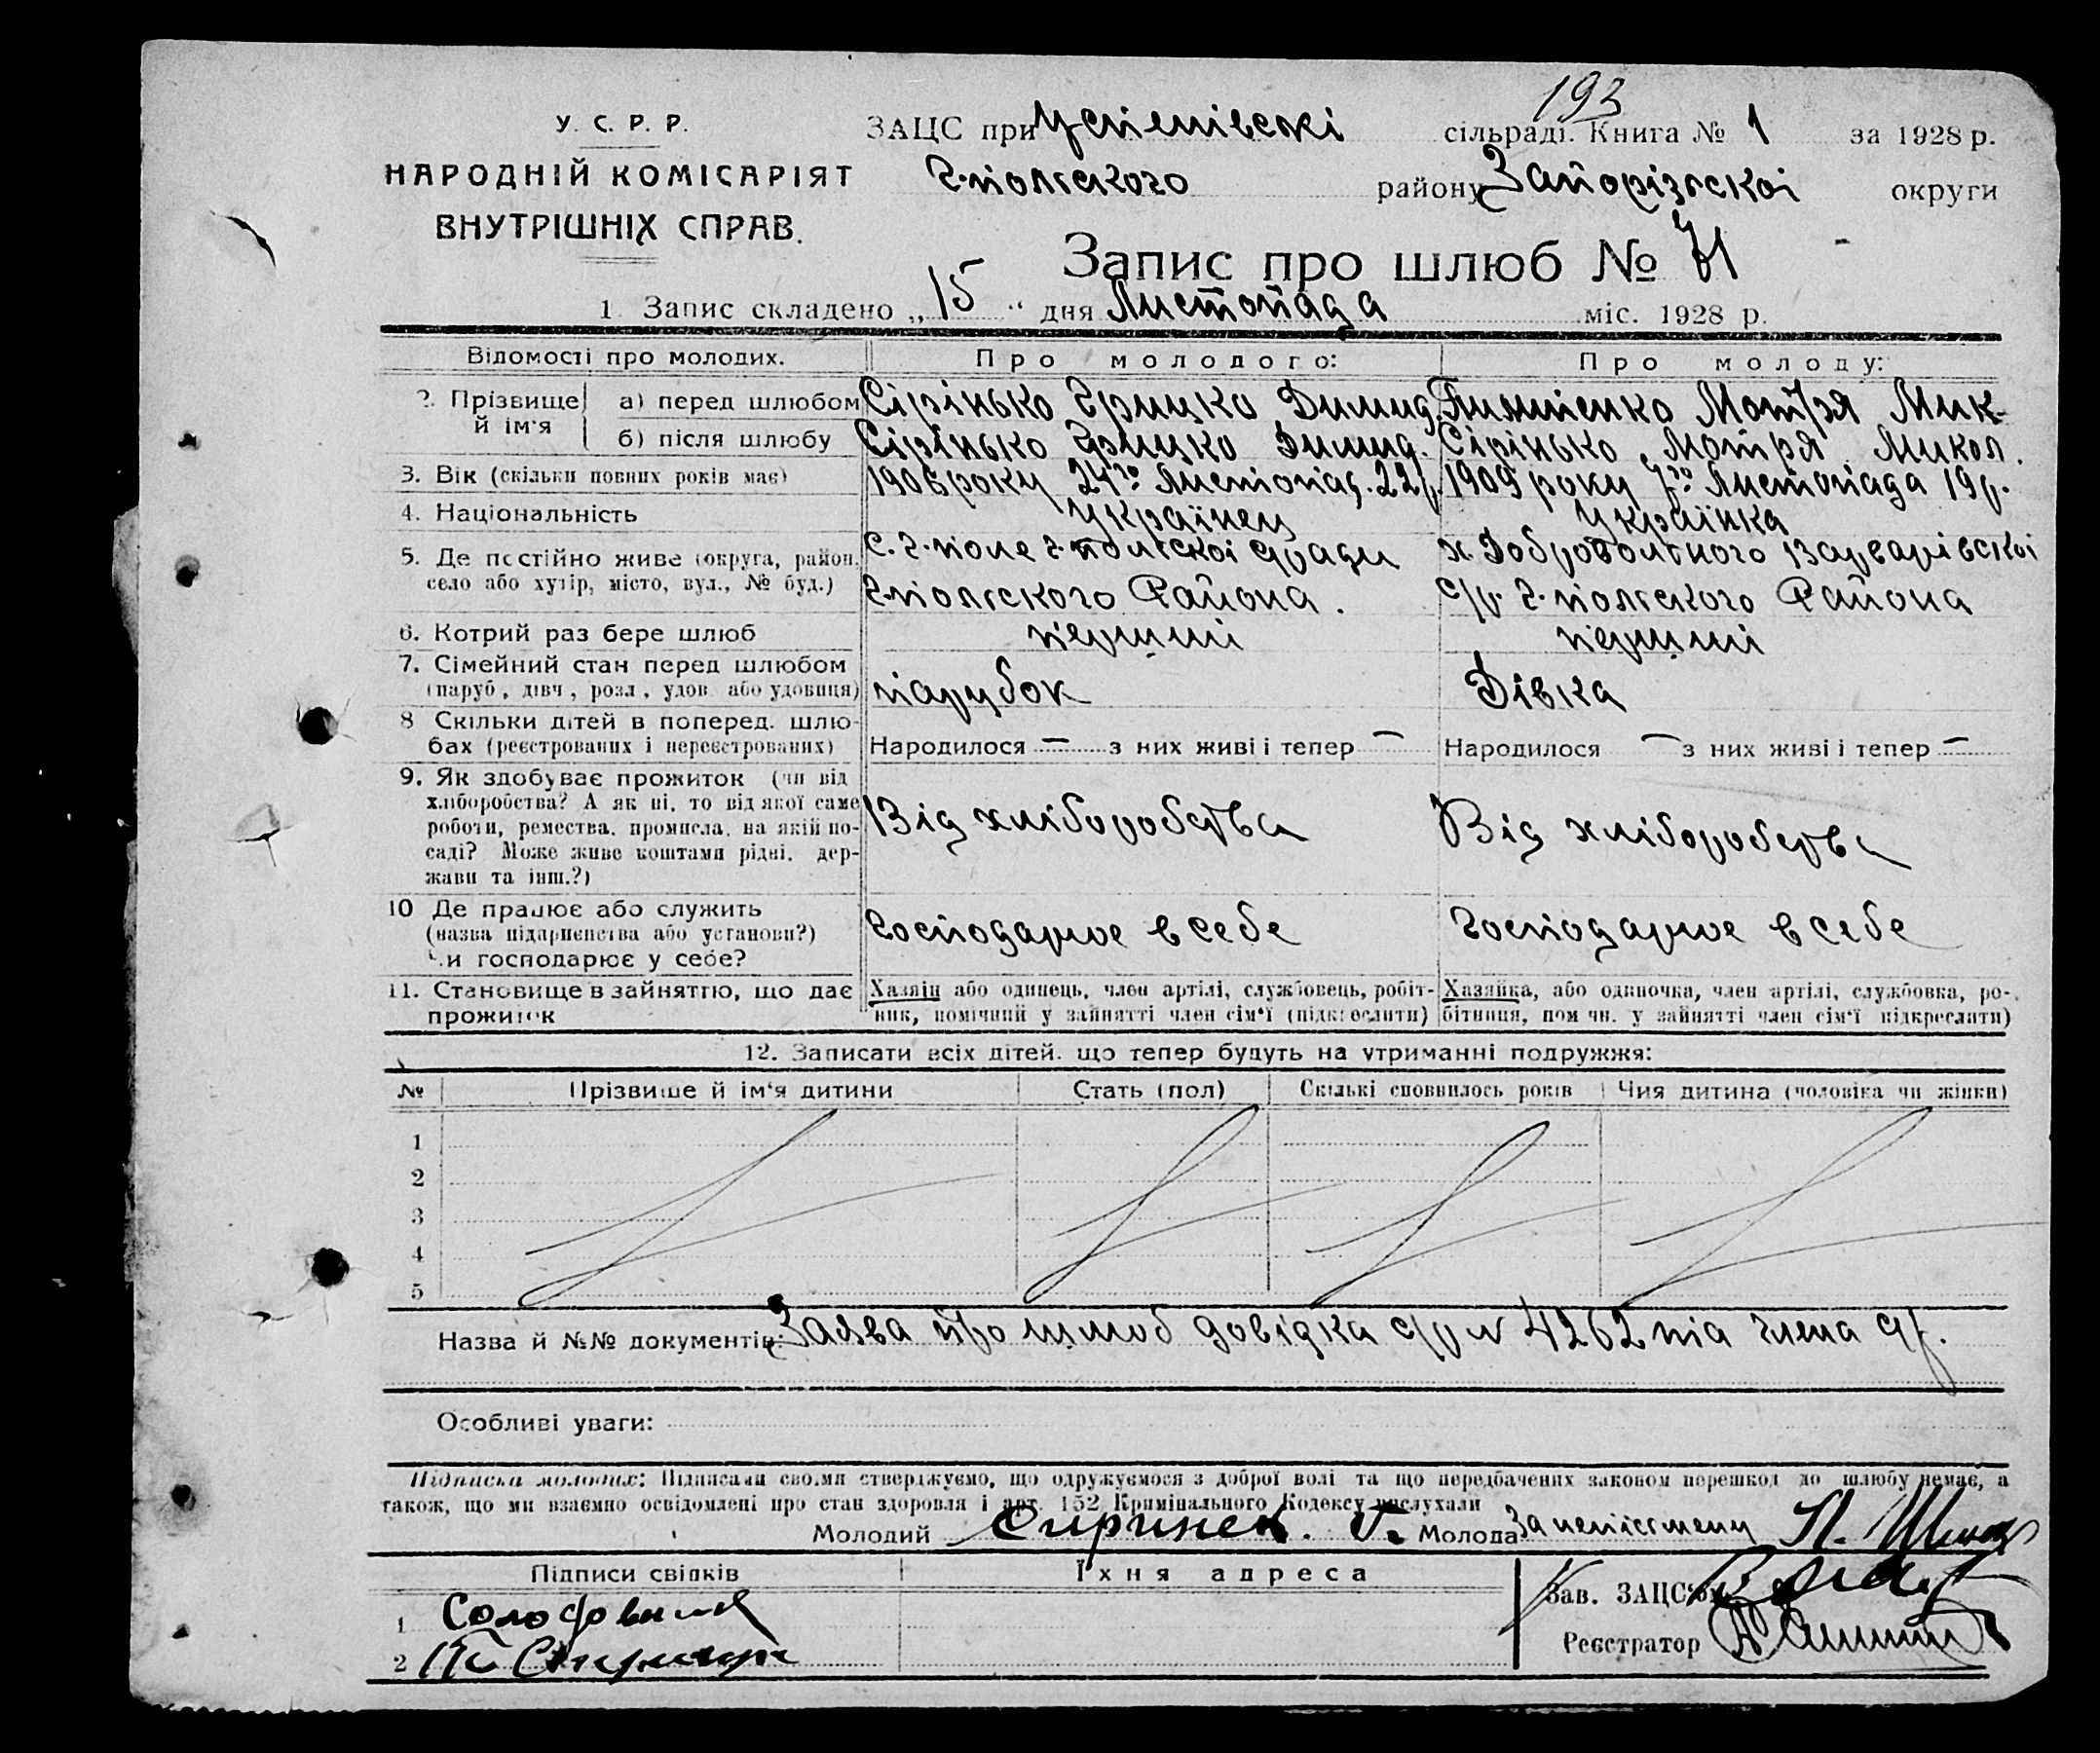 193
У. С. Р. Р.
НАРОДНІЙ КОМІСАРІЯТ
ВНУТРІШНІХ СПРАВ.
ЗАЦС при Успенівскі сільраді. Книга № 1 за 1928 р.
Г-польского району Запорізької округи
Запис про шлюб № 71
1 Запис складено „ 15 “ дня Листопада міс. 1928 р.
Відомості про молодих. Про молодого: Про молоду:
2. Прізвище й ім'я а) перед шлюбом Сірінько Грицко Димид. Мотря Мик-
б) після шлюбу Сірінько Грицко Димид. Сірінько Мотря Микол.
3. Вік (скільки повних років має) 1906 року 24го Листопад. 22 р. 1909 року 7го Листопада 19 р.
4. Національність Українец Українка
5. Де постійно живе (округа, район, село або хутір, місто, вул., № буд.) с. Г-поле Г-польскоі с/ради Г-польского Района. х. Добровольного Варварівскоі с/р. Г-польского Района
6. Котрий раз бере шлюб перший перший
7. Сімейний стан перед шлюбом (паруб., дівч., розл., удов. або удовиця) парубок Дівка
8 Скільки дітей в поперед. шлюбах (реєстрованих і нереєстрованих) Народилося — з них живі і тепер — Народилося — з них живі і тепер —
9. Як здобуває прожиток (чи від хліборобства? А як ні, то від якої саме роботи, ремества, промисла, на якій посаді? Може живе коштами рідні, держави та інш.?) Від хліборобства Від хліборобства
10 Де працює або служить (назва підприємства або установи?) Чи господарює у себе? Господарює в себе Господарює в себе
11. Становище в зайняттю, що дає прожиток Хазяїн або одинець, член артілі, службовець, робітник, помічний у зайнятті член сім'ї (підкреслити) Хазяйка, або одиночка, член артілі, службовка, робітниця, помічн. у зайнятті член сім'ї підкреслити)
12. Записати всіх дітей, що тепер будуть на утриманні подружжя:
№ Прізвище й ім'я дитини Стать (пол) Скількі сповнилось років Чия дитина (чоловіка чи жінки)
1
2
3
4
5
Назва й №№ документів: Заява про шлюб довідка с/р № 4262
Особливі уваги:
Підписка молодих: Підписами своїми стверджуємо, що одружуємося з доброї волі та що передбачених законом перешкод до шлюбу немає, а
також, що ми взаємно освідомлені про стан здоровля і арт. 152 Кримінального Кодексу вислухали
Молодий Молода За неписмену
Підписи свідків Їхня адреса Зав. ЗАЦС'ом
1 Солодовник
2
Реєстратор